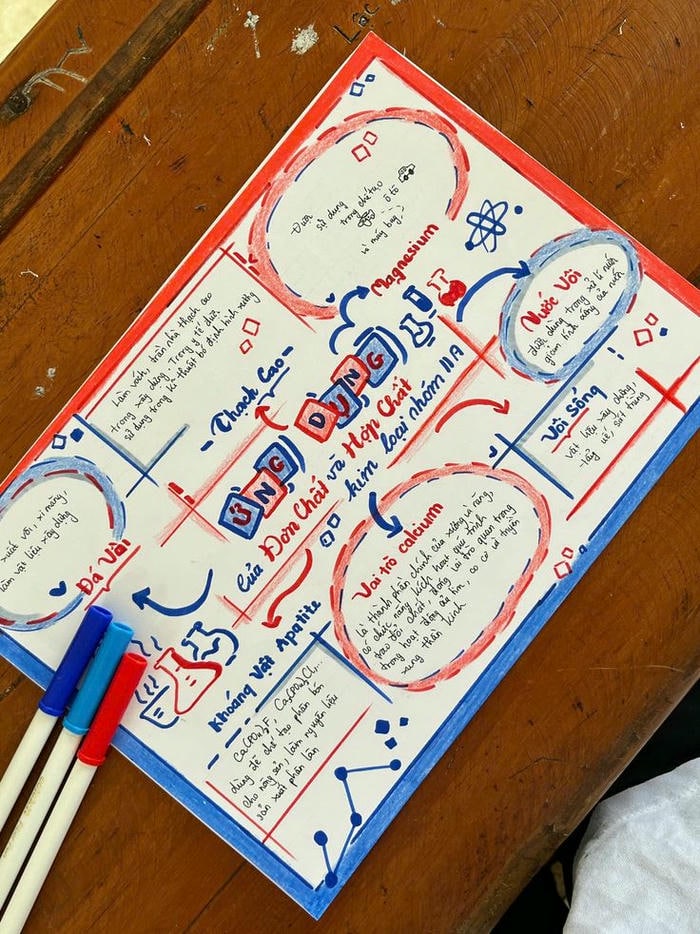 Lạc
Được
sử dụng
trong chế tạo
ô tô
và máy bay,
Magnesium
Nước Vôi
được dùng trong xử lí nước
giảm tính cứng của nước
Làm vách, trần nhà thạch cao
trong xây dựng. Trong y tế được
sử dụng trong kĩ thuật bó định hình xương
- Thạch Cao -
ỨNG DỤNG
Của Đơn Chất và Hợp Chất
kim loại nhóm IIA
Vôi Sống
vật liệu xây dựng,
-tẩy uế, sát trùng
xuất vôi, xi măng,
làm vật liệu xây dựng
Đá Vôi
Vai trò calcium
Là thành phần chính của xương và răng,
có chức năng kích hoạt quá trình
trao đổi chất, đóng vai trò quan trọng
trong hoạt động của tim, co cơ và truyền
xung thần kinh
Khoáng Vật Apatite
Ca5(PO4)3F, Ca5(PO4)3Cl,...
dùng để chế tạo phân bón
cho nông sản, làm nguyên liệu
sản xuất phân lân